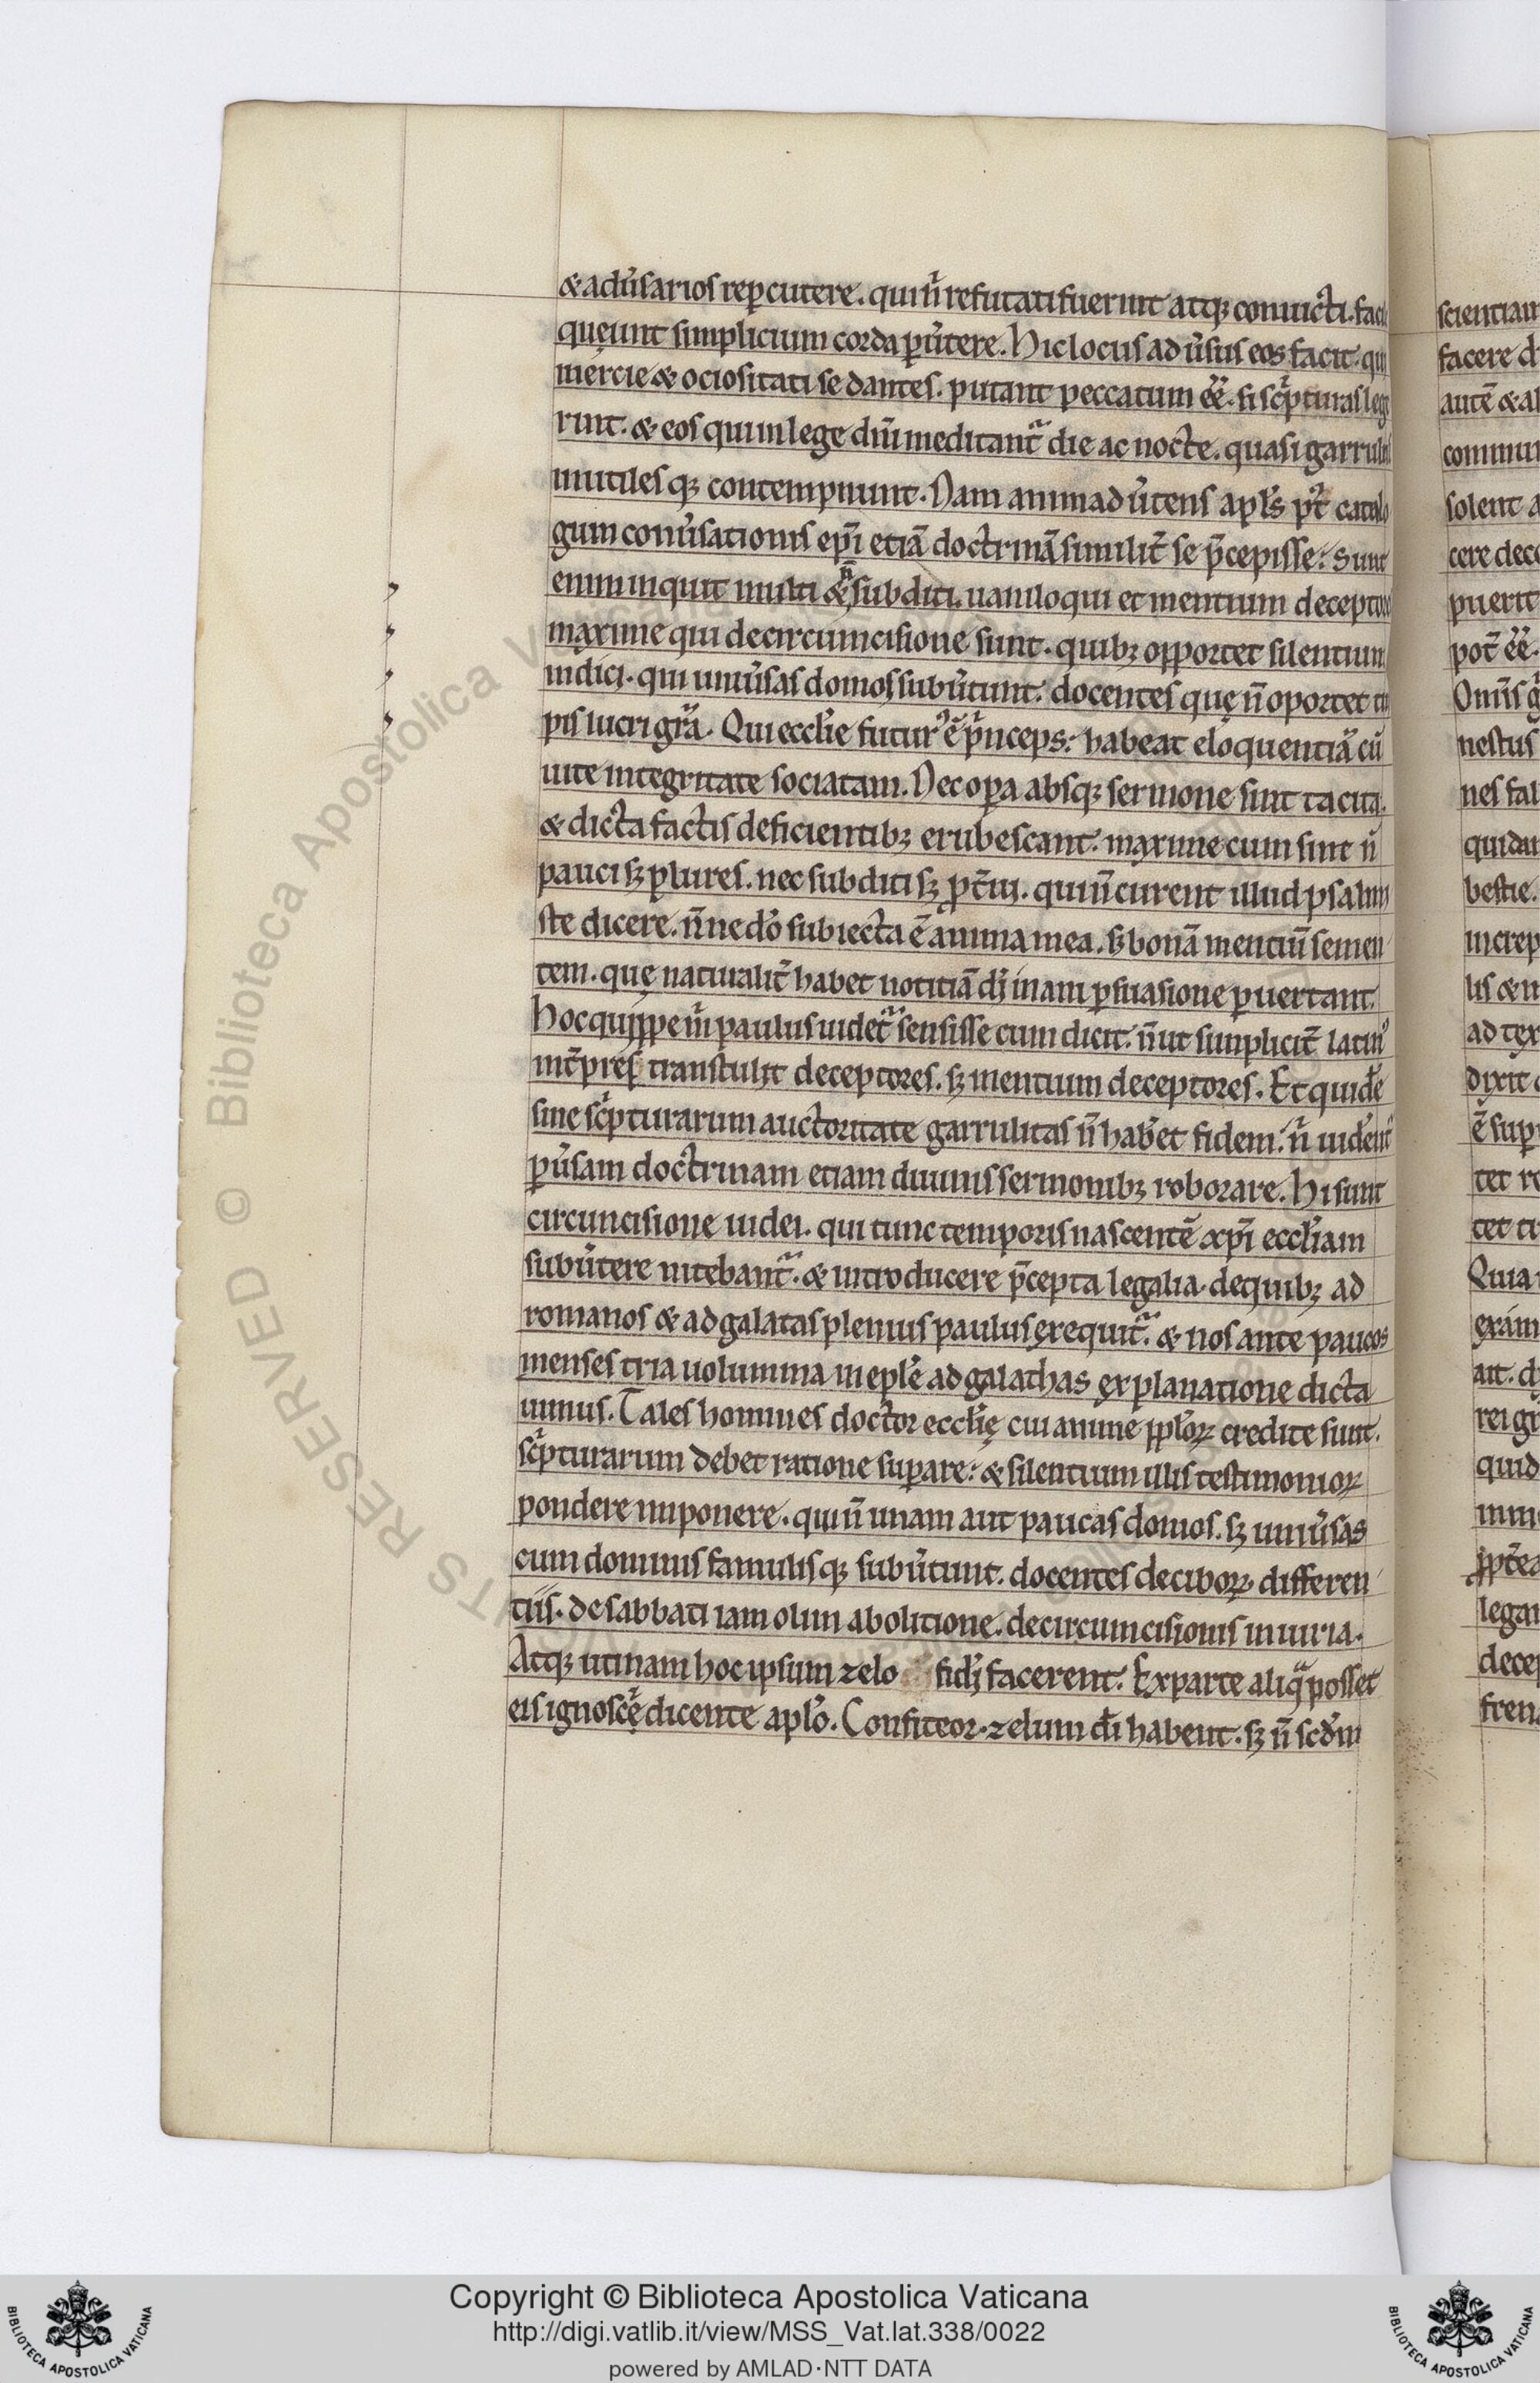 & adũsarios rep̱cutere. qui n̄ refutati fuerint atq; conuicti. facile
quęunt simplicium corda ꝑũtere. Hic locus aduũsus eos facit. qui
inercie & ociositati se dantes. putant peccatum eē. si sc̣pturas lege
rint. & eos qui in lege dn̄i meditant̃ die ac nocte. quasi garrulos
inutiles q; contempnunt. Nam animadũtens apl̃s p̃t catalo
gum conũsationis ep̄i etiā doctrinā similit̃ se p̄cepisse. Sunt
enim inquit multi & n̄ subditi. uaniloqui et mentium deceptores
maxime qui de circumcisione sunt. quib; opportet silentium
indici. qui uniũsas domos subũtunt. docentes quę n̄ oportet tur
pis lucri grā. Qui eccłie futur᾿ ē p̄nceps. habeat eloquentiā cū
uite integritate sociatam. Nec oꝑa absq; sermone sint tacita.
& dicta factis deficientib; erubescant. maxime cum sint n̄
pauci s; plures. nec subditi s; ꝓt̃ui. qui n̄ curent illud psalmi
ste dicere. n̄ne dō subiecta ē anima mea. s; bonā mentiū semen
tem. quę naturalit̃ habet notitiā di inam ꝑsuasione ꝑuertant.
Hoc quippe in̄ paulus uidet̃ sensisse cum dicit. n̄ ut simplicit̃ latin᾿
int̃pres transtulit deceptores. s; mentium deceptores. Et quidē
sine sc̣pturarum auctoritate garrulitas n̄ habet fidem. n̄ uident̃
ꝑũsam doctrinam etiam diuinis sermonib; roborare. Hi sunt
circuncisione iudei. qui tunc temporis nascentē xp̄i eccłiam
subũtere nitebant̃. & introducere p̄cepta legalia. de quib; ad
romanos & ad galatas plenius paulus exequit̃. & nos ante paucos
menses tria uolumina in epłe ad galathas explanatione dicta
uimus. Tales homines doctor eccłię cui anime ppłoꝝ credite sunt.
sc̣pturarum debet ratione suꝑare. & silentium illis testimonioꝝ
pondere imponere. qui n̄ unam aut paucas domos. s; uniũsas
cum dominis famulisq; subũtunt. docentes de ciboꝝ differen
tiis. de sabbati iam olim abolitione. de circumcisionis iniuria.
Atq; utinam hoc ipsum zelo fidi facerent. Ex parte aliq̃ posset
eis ignoscę dicente apło. Confiteor. zelum di habent. s; n̄ scdm
Copyright © Biblioteca Apostolica Vaticana
http://digi.vatlib.it/view/MSS_Vat.lat.338/0022
powered by AMLAD·NTT DATA